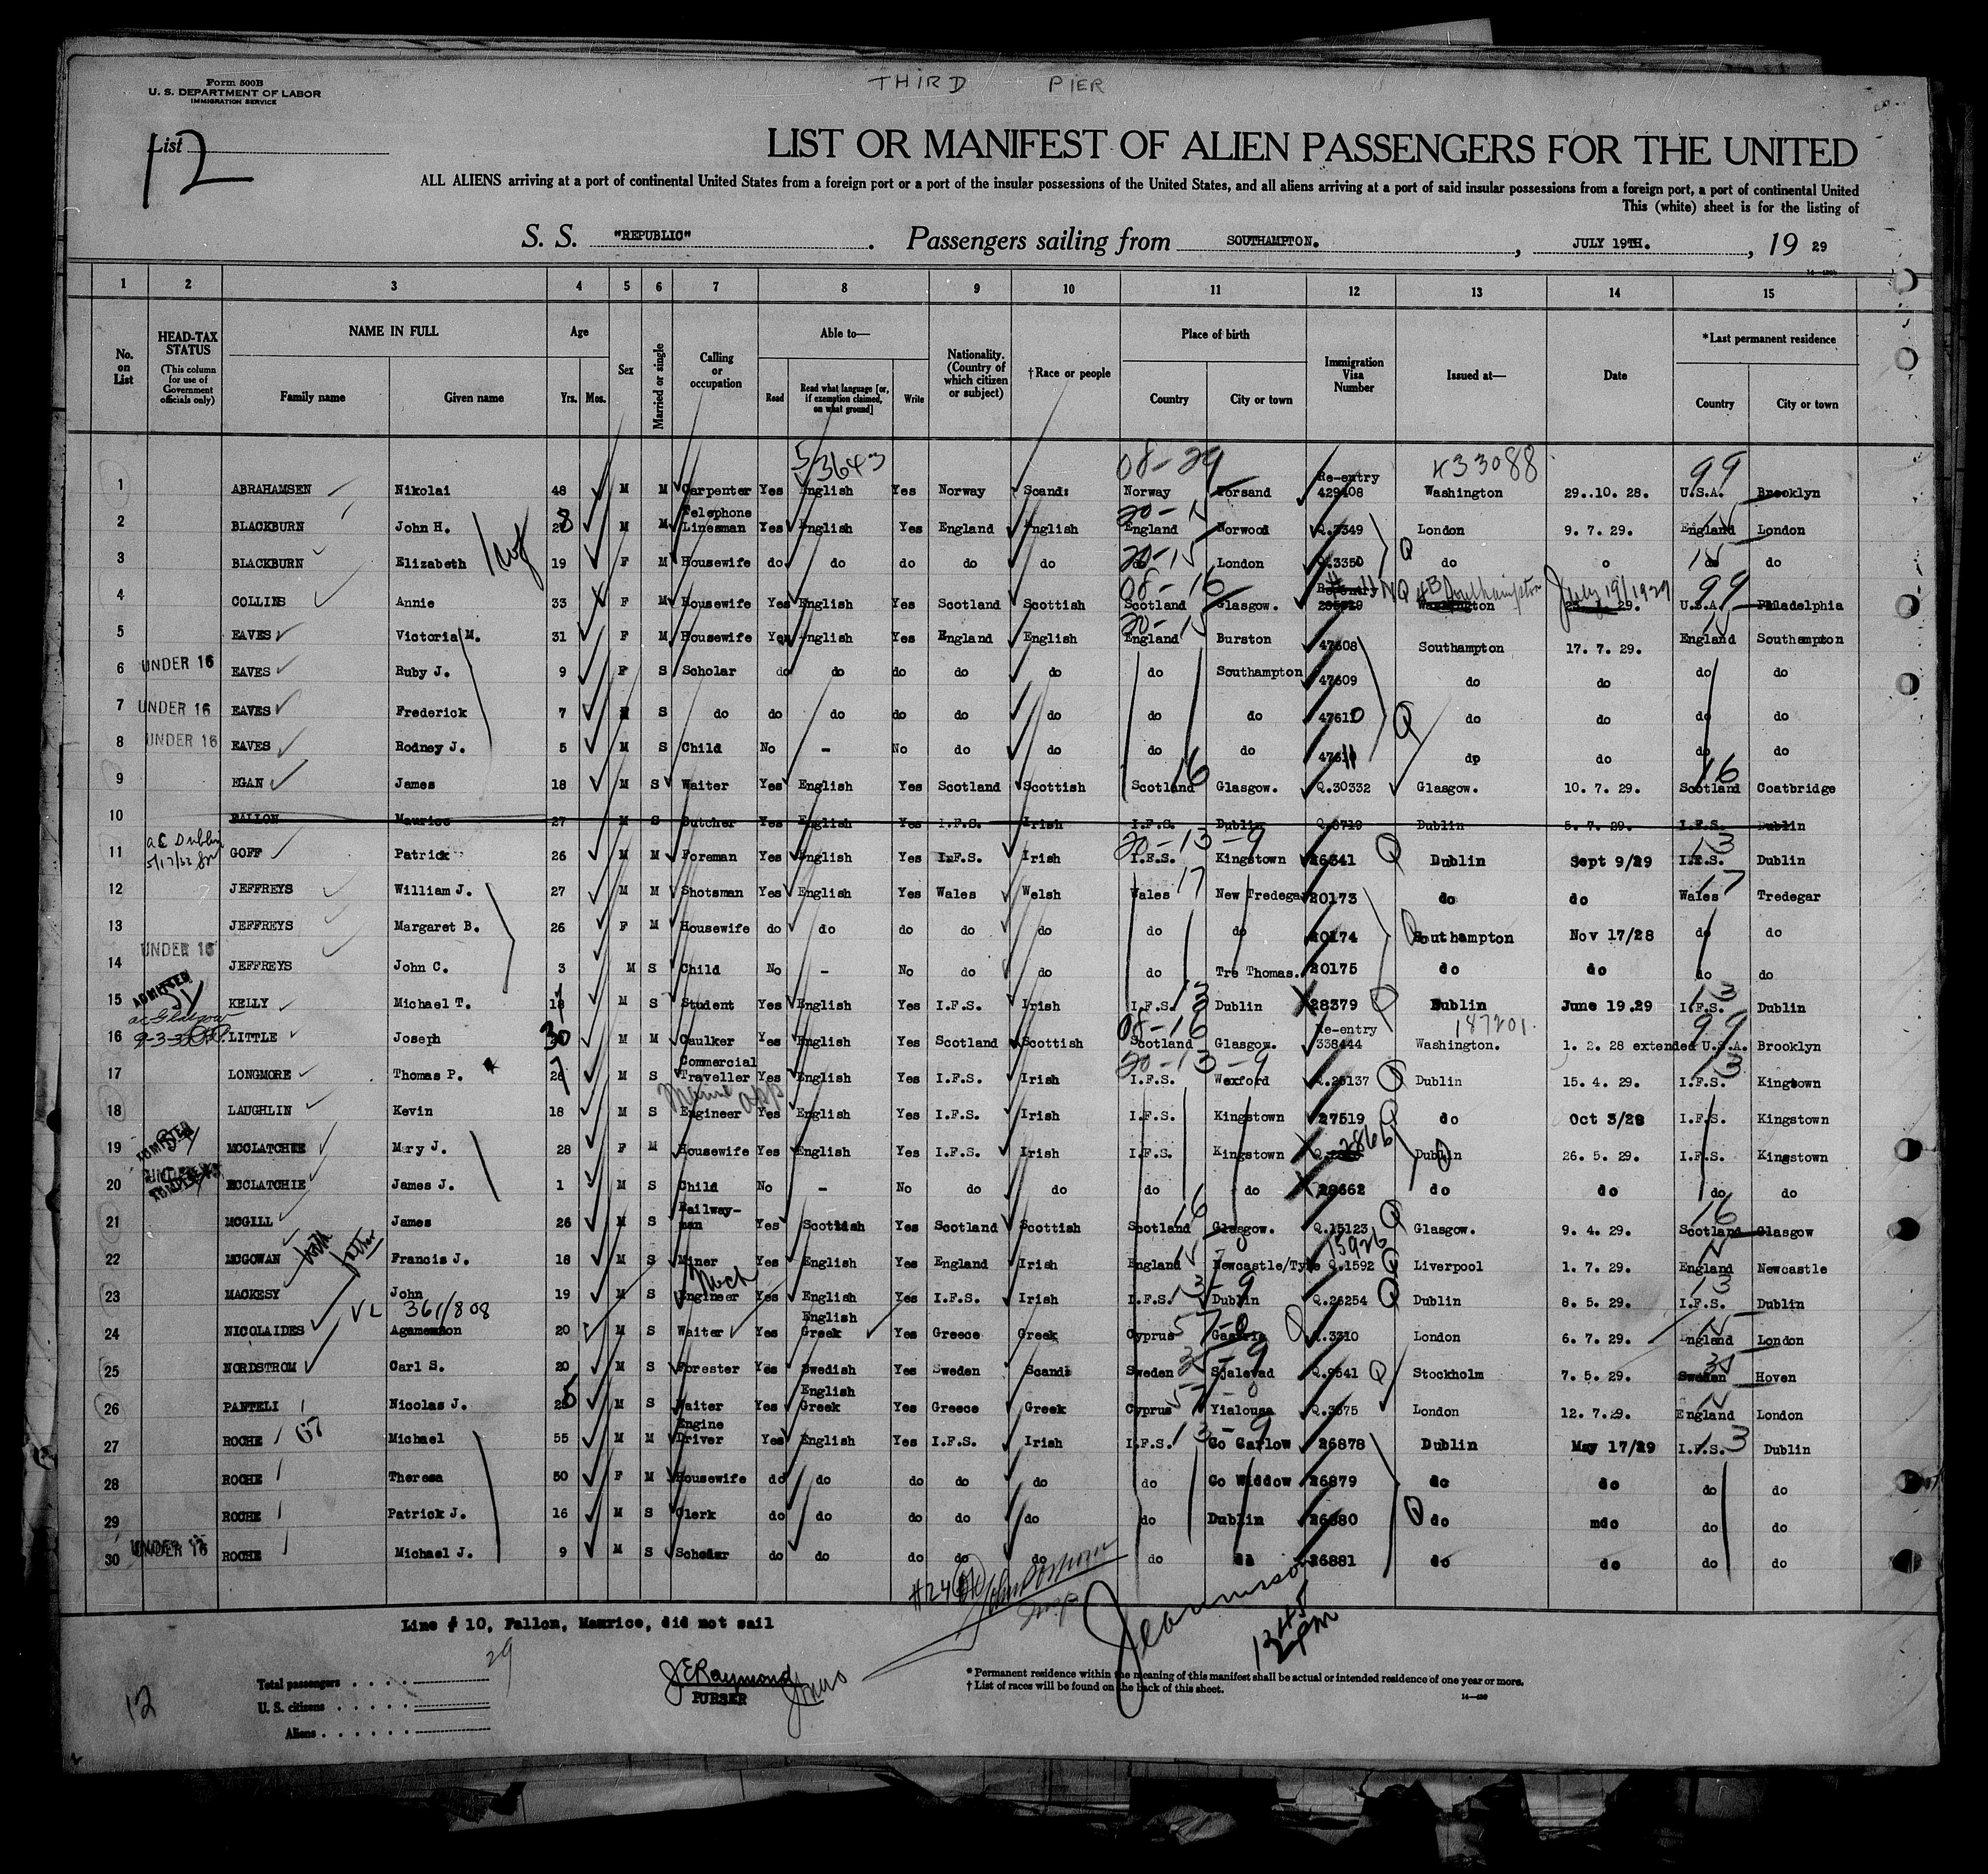 THIRD PIER
Form 500B
U. S. DEPARTMENT OF LABOR
IMMIGRATION SERVICE
List 12
LIST OR MANIFEST OF ALIEN PASSENGERS FOR THE UNITED
ALL ALIENS arriving at a port of continental United States from a foreign port or a port of the insular possessions of the United States, and all aliens arriving at a port of said insular possessions from a foreign port, a port of continental United
This (white) sheet is for the listing of
S. S. "REPUBLIC" . Passengers sailing from SOUTHAMPTON. , JULY 19TH. , 19 29
1 2 3 4 5 6 7 8 9 10 11 12 13 14 15
No. on List HEAD-TAX STATUS (This column for use of Government officials only) NAME IN FULL Family name Given name Age Yrs. Mos. Sex Married or single Calling or occupation Able to— Read Read what language [or, if exemption claimed, on what ground] Write Nationality. (Country of which citizen or subject) †Race or people Place of birth Country City or town Immigration Visa Number Issued at— Date *Last permanent residence Country City or town
53643 08-29 433088 99
1 ABRAHAMSEN Nikolai 48 M M Carpenter Yes English Yes Norway Scand: Norway Forsand Re-entry 429408 Washington 29..10. 28. U.S.A. Brooklyn
2 BLACKBURN John H. 28 M M Telephone Linesman Yes English Yes England English England Norwood Q.3349 London 9. 7. 29. England London
3 BLACKBURN Elizabeth 19 F M Housewife do do do do do do London Q.3350 do o do do
4 COLLINS Annie 33 F M Housewife Yes English Yes Scotland Scottish Scotland Glasgow. Re-entry NQ Washington Southampton July 19/1929 U.S.A. Philadelphia
5 EAVES Victoria M. 31 F M Housewife Yes English Yes England English England Burston 47608 Southampton 17. 7. 29. England Southampton
6 UNDER 16 EAVES Ruby J. 9 F S Scholar do do do do do do Southampton 47609 do do do do
7 UNDER 16 EAVES Frederick 7 M S do do do do do do do do 47610 do do do do
8 UNDER 16 EAVES Rodney J. 5 M S Child No - No do do do do 47611 do do do do
9 EGAN James 18 M S Waiter Yes English Yes Scotland Scottish Scotland Glasgow. Q.30332 Glasgow. 10. 7. 29. Scotland Coatbridge
10 FALLON Maurice 27 M S Butcher Yes English Yes I.F.S. Irish I.F.S. Dublin Q.8719 Dublin 5. 7. 29. I.F.S. Dublin
11 GOFF Patrick 26 M M Foreman Yes English Yes I.F.S. Irish I.F.S. Kingstown 26341 Dublin Sept 9/29 I.F.S. Dublin
12 JEFFREYS William J. 27 M M Shotsman Yes English Yes Wales Welsh Wales New Tredegar 20173 do do Wales Tredegar
13 JEFFREYS Margaret B. 26 F M Housewife do do do do do do do 20174 Southampton Nov 17/28 do do
14 UNDER 16 JEFFREYS John C. 3 M S Child No - No do do do Tre Thomas. 20175 do do do do
15 ADMITTED KELLY Michael T. M S Student Yes English Yes I.F.S. Irish I.F.S. Dublin 28379 Dublin June 19.29 I.F.S. Dublin
16 LITTLE Joseph 30 M M Caulker Yes English Yes Scotland Scottish Scotland Glasgow. Re-entry 338444 187201 Washington. 1. 2. 28 extended U.S.A. Brooklyn
17 LONGMORE Thomas P. M S Commercial Traveller Yes English Yes I.F.S. Irish I.F.S. Wexford Q.26137 Dublin 15. 4. 29. I.F.S. Kingtown
18 LAUGHLIN Kevin 18 M S Engineer Yes English Yes I.F.S. Irish I.F.S. Kingstown 27519 do Oct 3/28 I.F.S. Kingstown
19 MCCLATCHIE Mary J. 28 F M Housewife Yes English Yes I.F.S. Irish I.F.S. Kingstown Dublin 26. 5. 29. I.F.S. Kingstown
20 MCCLATCHIE James J. 1 M S Child No - No do do do do 28662 do do do do
21 MCGILL James 26 M S Railway-man Yes Scottish Yes Scotland Scottish Scotland Glasgow. Q.15123 Glasgow. 9. 4. 29. Scotland Glasgow
22 MCGOWAN Francis J. 18 M S Miner Yes English Yes England Irish England Newcastle/Tyne Q.1592 15926 Liverpool 1. 7. 29. England Newcastle
23 MACKESY John 19 M S Engineer Yes English Yes I.F.S. Irish I.F.S. Dublin Q.26254 Dublin 8. 5. 29. I.F.S. Dublin
24 NICOLAIDES VL 361/808 Agamemnon 20 M S Waiter Yes English Greek Yes Greece Greek Cyprus Q.3310 London 6. 7. 29. England London
25 NORDSTROM Carl S. 20 M S Forester Yes Swedish Yes Sweden Scand: Sweden Sjalevad Q.9541 Stockholm 7. 5. 29. Sweden Hoven
26 PANTELI Nicolas J. 25 M S Waiter Yes English Greek Yes Greece Greek Cyprus Yialousa Q.3375 London 12. 7.29. England London
27 ROCHE Michael 55 M M Engine Driver Yes English Yes I.F.S. Irish I.F.S. Co Carlow 26878 Dublin May 17/29 I.F.S. Dublin
28 ROCHE Theresa 50 F M Housewife do do do do do do Co Widdow 26879 do do do do
29 ROCHE Patrick J. 16 M S Clerk do do do do do do Dublin 26880 do mdo do do
30 UNDER 16 ROCHE Michael J. 9 M S Scholar do do do do do do do 26881 do do do do
Line # 10, Fallon, Maurice, did not sail
Total passengers . . . . 29
U. S. citizens . . . . .
Aliens . . . . . .
12
JERaymond
PURSER
* Permanent residence within the meaning of this manifest shall be actual or intended residence of one year or more.
† List of races will be found on the back of this sheet.